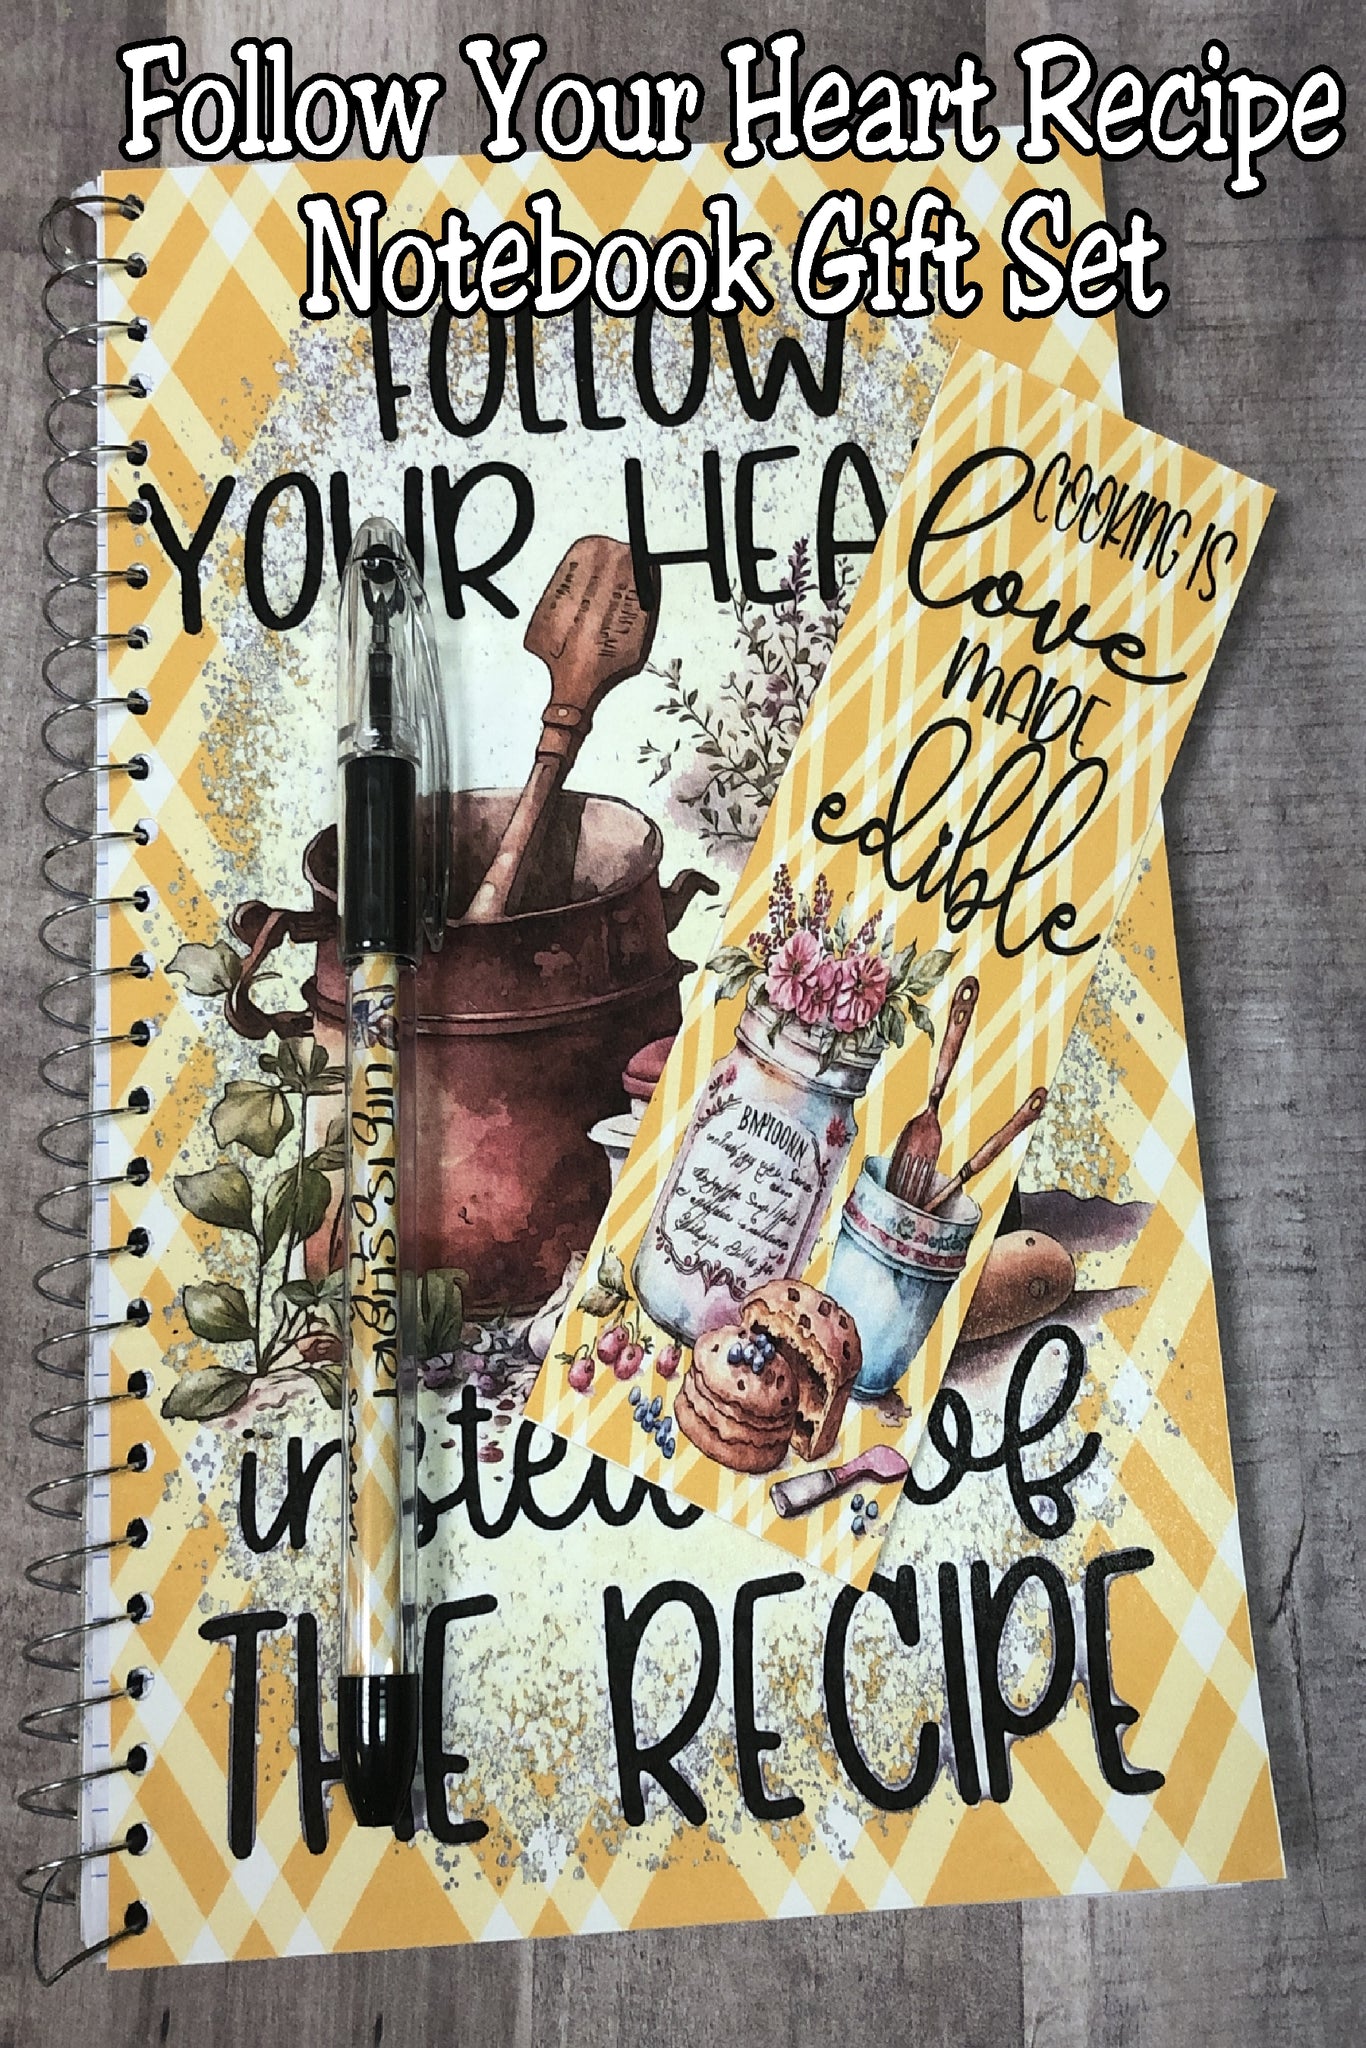 Follow Your Heart Recipe
Notebook Gift Set
FOLLOW
YOUR HEA
instea of
THE RECIPE
COOKING IS
love
MADE
edible
BMPTOONN